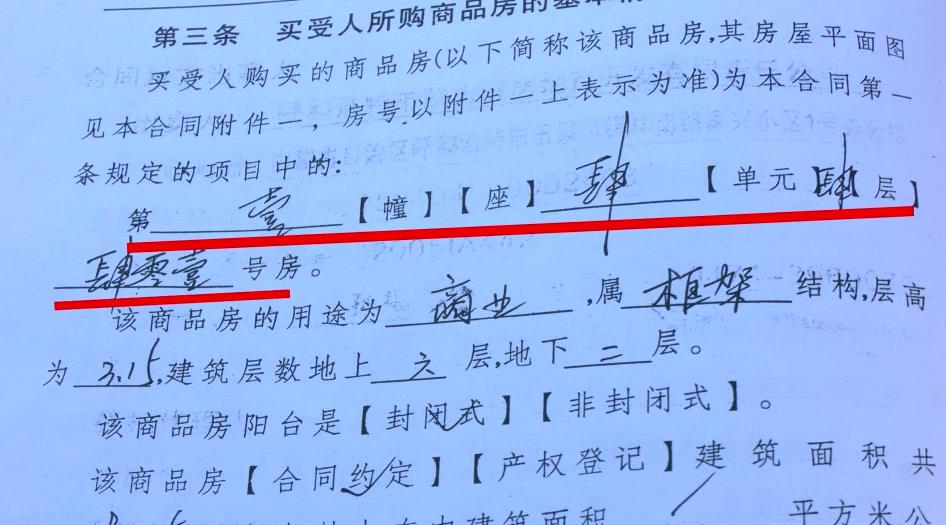 第三条 买受人所购商品房的基本
买受人购买的商品房(以下简称该商品房,其房屋平面图
见本合同附件一，房号以附件一上表示为准)为本合同第一
条规定的项目中的:
第 壹 【幢】【座】 肆 【单元】肆【层】
肆零壹 号房。
该商品房的用途为 商业 ,属 框架 结构,层高
为 3.15,建筑层数地上 六 层,地下 二 层。
该商品房阳台是【封闭式】【非封闭式】。
该商品房【合同约定】【产权登记】建筑面积共
建筑面积 平方米公